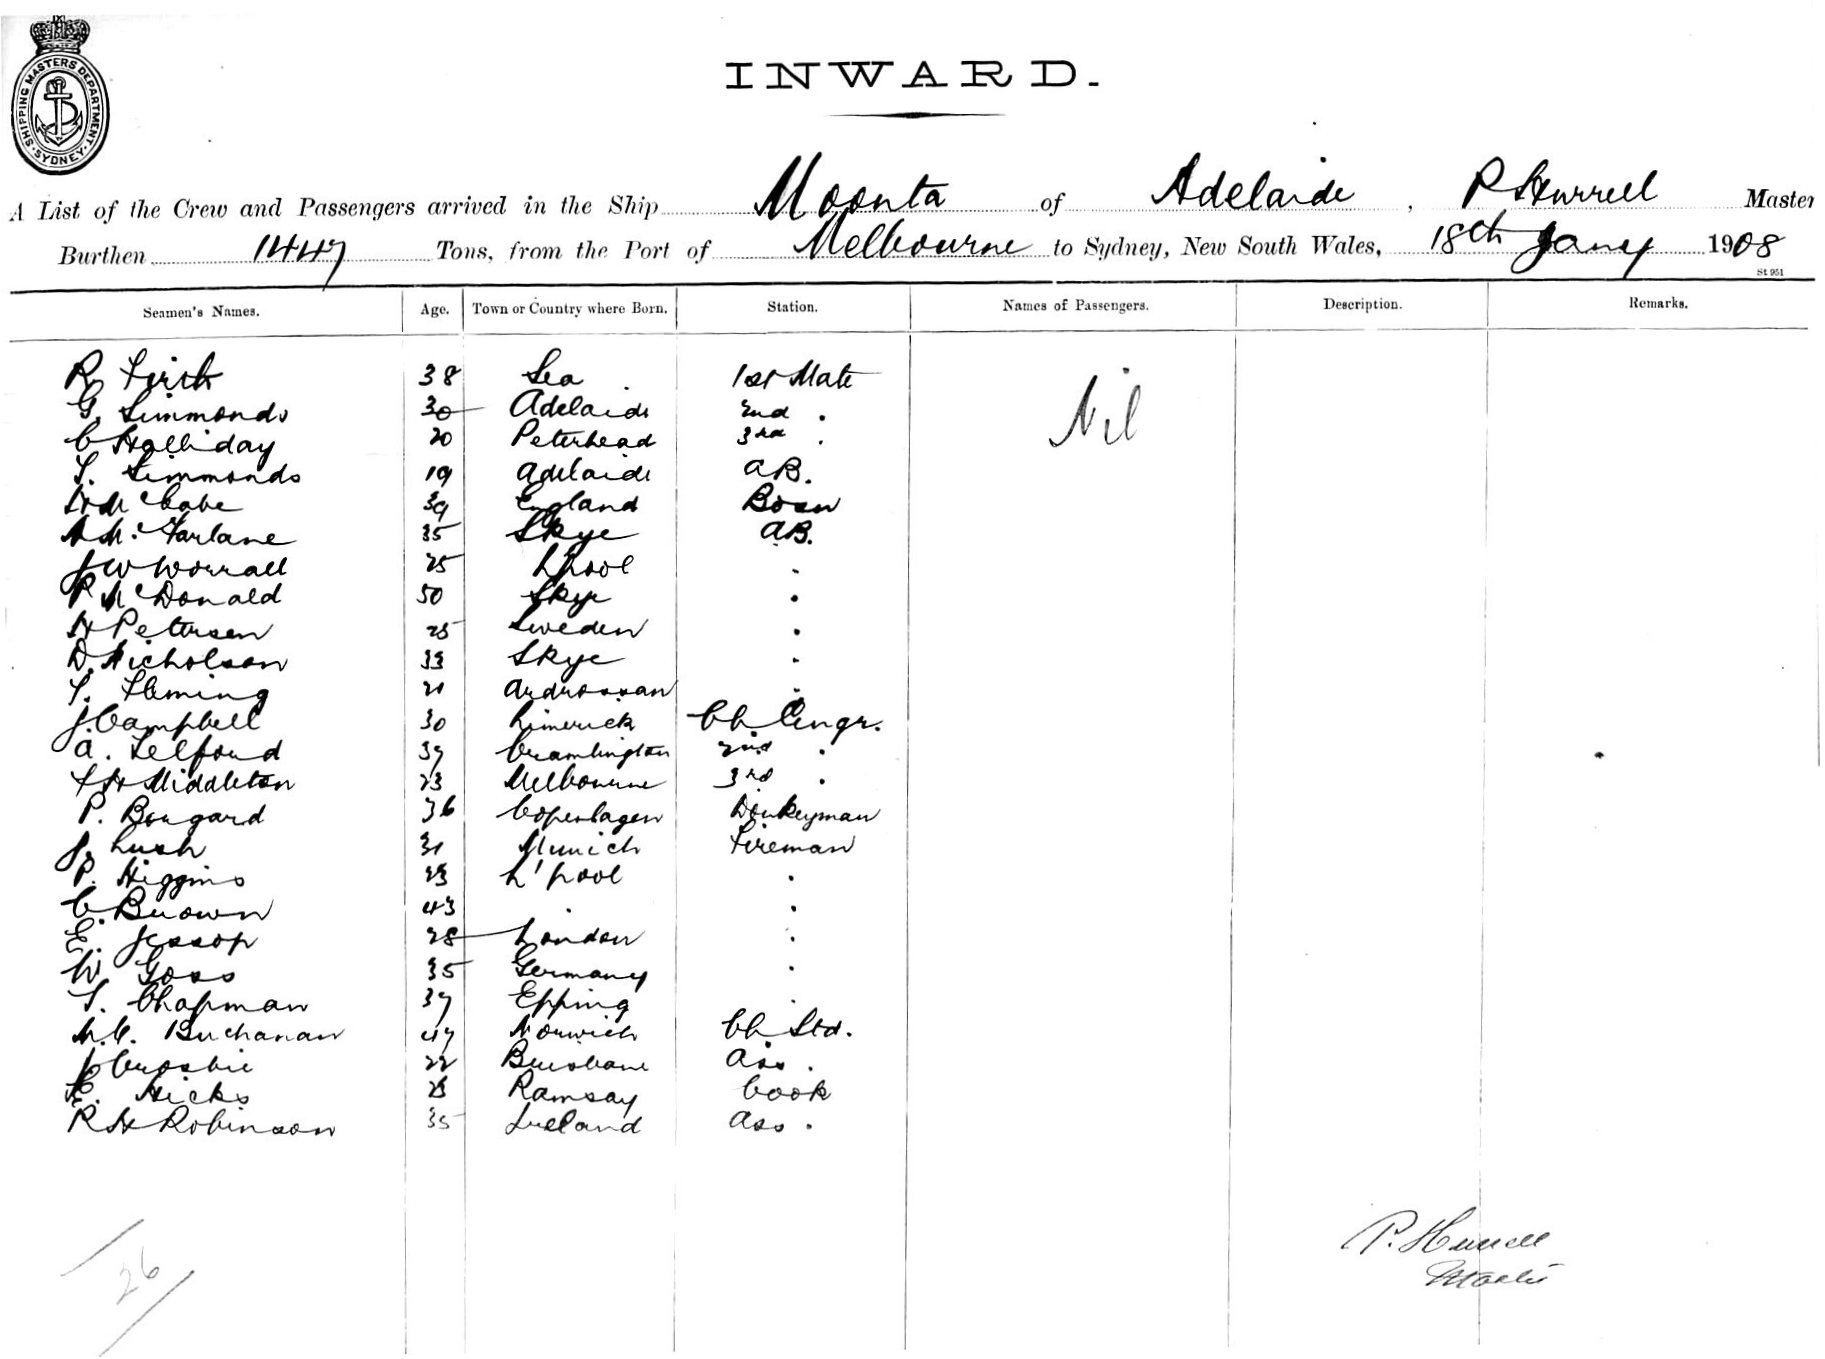 SHIPPING MASTERS DEPARTMENT
SYDNEY
INWARD.
A List of the Crew and Passengers arrived in the Ship Moonta of Adelaide, P Hurrell Master
Burthen 1447 Tons, from the Port of Melbourne to Sydney, New South Wales, 18th Jany 1908
St 951
Seamen's Names. Age. Town or Country where Born. Station. Names of Passengers. Description. Remarks.
R Firth 38 Sea 1st Mate
G. Simmonds 30 Adelaide 2nd "
C Halliday 20 Peterhead 3rd "
S. Simmonds 19 Adelaide AB.
H McCabe 39 England Bosn
A McFarlane 35 Skye AB.
J W Worrall 25 L'pool "
P McDonald 50 Skye "
H Petersen 25 Sweden "
D. Nicholson 33 Skye "
T. Fleming 21 Ardrossan "
J. Campbell 30 Limerick Ch. Engr.
A. Telford 37 Cramlington 2nd "
F H Middleton 23 Melbourne 3rd "
P. Bongard 36 Copenhagen Donkeyman
J. Lush 31 Munich Fireman
P. Higgins 23 L'pool "
C. Brown 43 " "
E. Jessop 28 London "
W Goss 35 Germany "
S. Chapman 37 Epping "
M.C. Buchanan 47 Norwich Ch Std.
J Crosbie 22 Brisbane Ass.
E. Hicks Ramsay Cook
R H Robinson 35 Ireland Ass.
Nil
26
P. Hurrell
Master